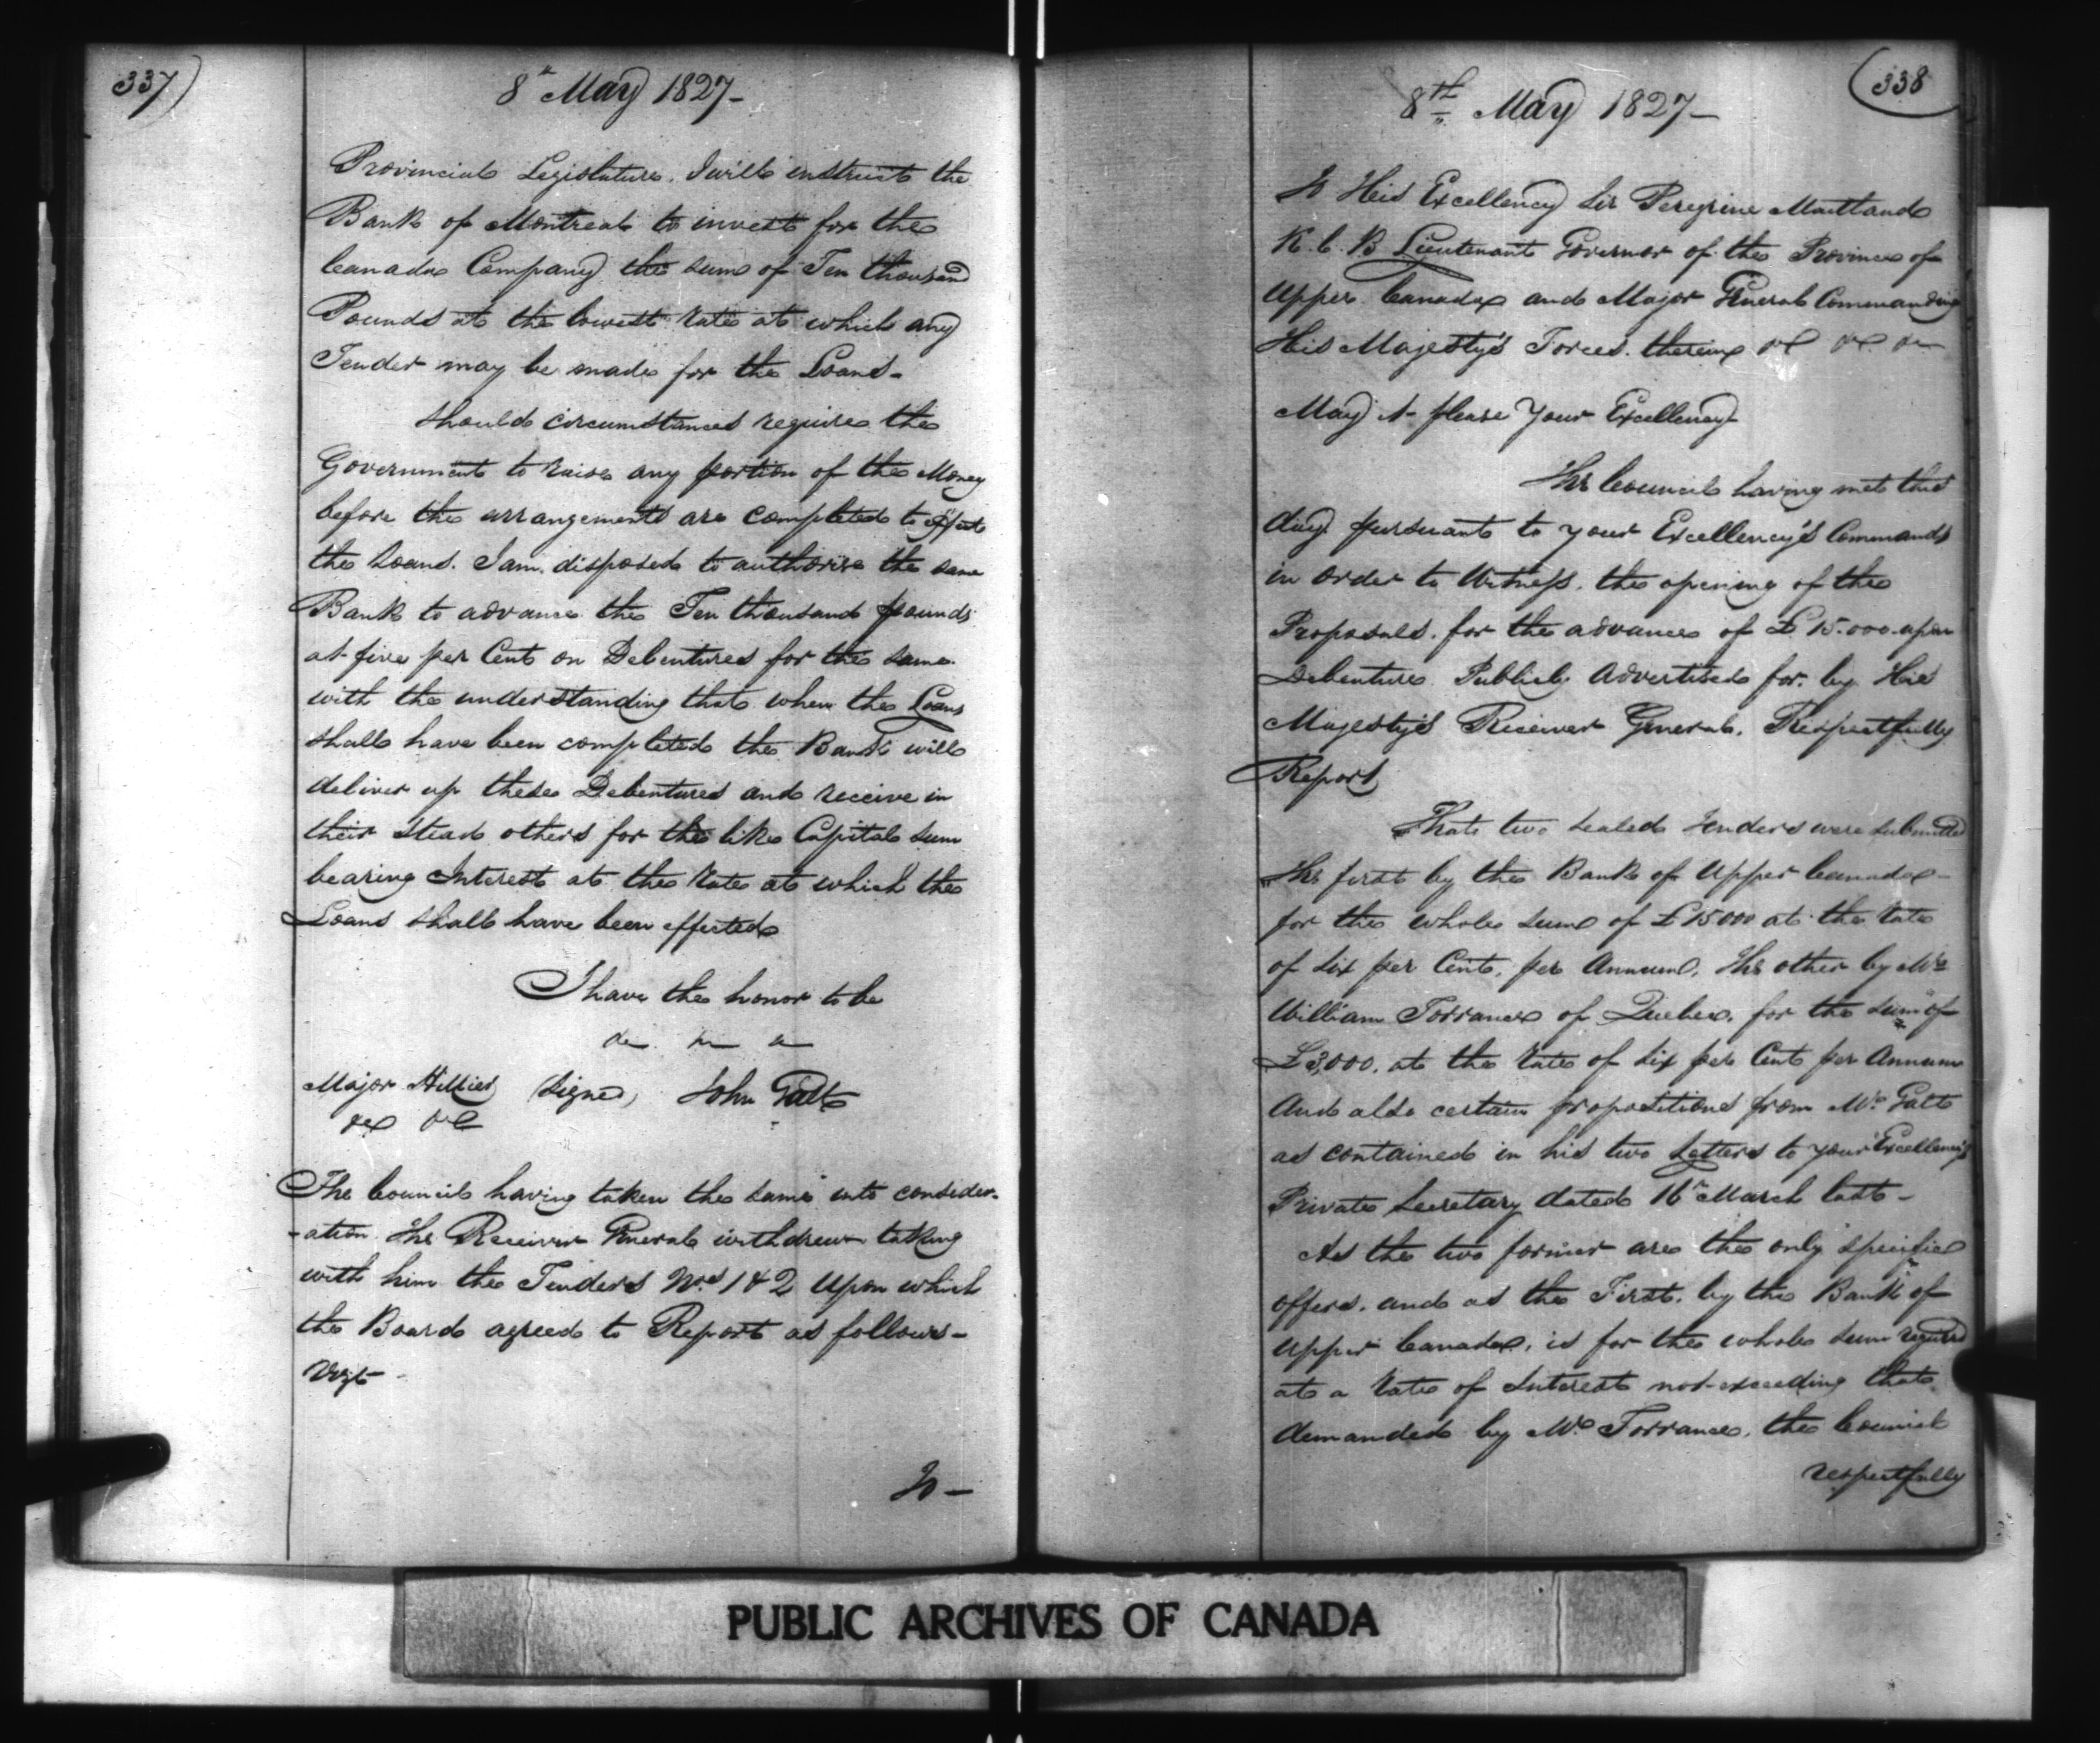 337)
8th May 1827-
Provincial Legislature. I will instruct the
Bank of Montreal to invest for the
Canada Company the sum of Ten thousand
Pounds at the lowest rate at which any
Tender may be made for the Loans-
Should circumstances require the
Government to raise any portion of the Money
before the arrangements are completed to effect
the Loans. I am disposed to authorise the same
Bank to advance the Ten thousand pounds
at five per Cent on Debentures for the same
with the understanding that when the Loans
shall have been completed the Bank will
deliver up these Debentures and receive in
their stead others for the like Capital sum
bearing Interest at the rate at which the
Loans shall have been effected
I have the honor to be
&c &c &c
Major Hillier (signed) John Galt
&c &c
The Council having taken the same into consider-
-ation The Receiver General withdrew taking
with him the Tenders Nos. 1 & 2 Upon which
the Board agreed to Report as follows-
Vizt-
To-
(338
8th May 1827-
To His Excellency Sir Peregrine Maitland
K.C.B Lieutenant Governor of the Province of
Upper Canada and Major General Commanding
His Majesty's Forces therein &c &c &c
May it please Your Excellency
The Council having met this
day pursuant to your Excellency's Commands
in order to Witness the opening of the
Proposals for the advance of £15.000 upon
Debenture Publicly Advertised for by His
Majesty's Receiver General, Respectfully
Report
That two sealed Tenders were submitted
The first by the Bank of Upper Canada-
for the whole sum of £15000 at the rate
of six per Cent. per Annum, The other by Mr
William Torrance of Quebec, for the sum of
£3,000, at the rate of six per Cent per Annum
And also certain propositions from Mr Galt
as contained in his two Letters to your Excellency's
Private Secretary dated 16th March last-
As the two former are the only specific
offers, and as the First, by the Bank of
Upper Canada, is for the whole sum required
at a rate of Interest not exceeding that
demanded by Mr Torrance, the Council
respectfully
PUBLIC ARCHIVES OF CANADA